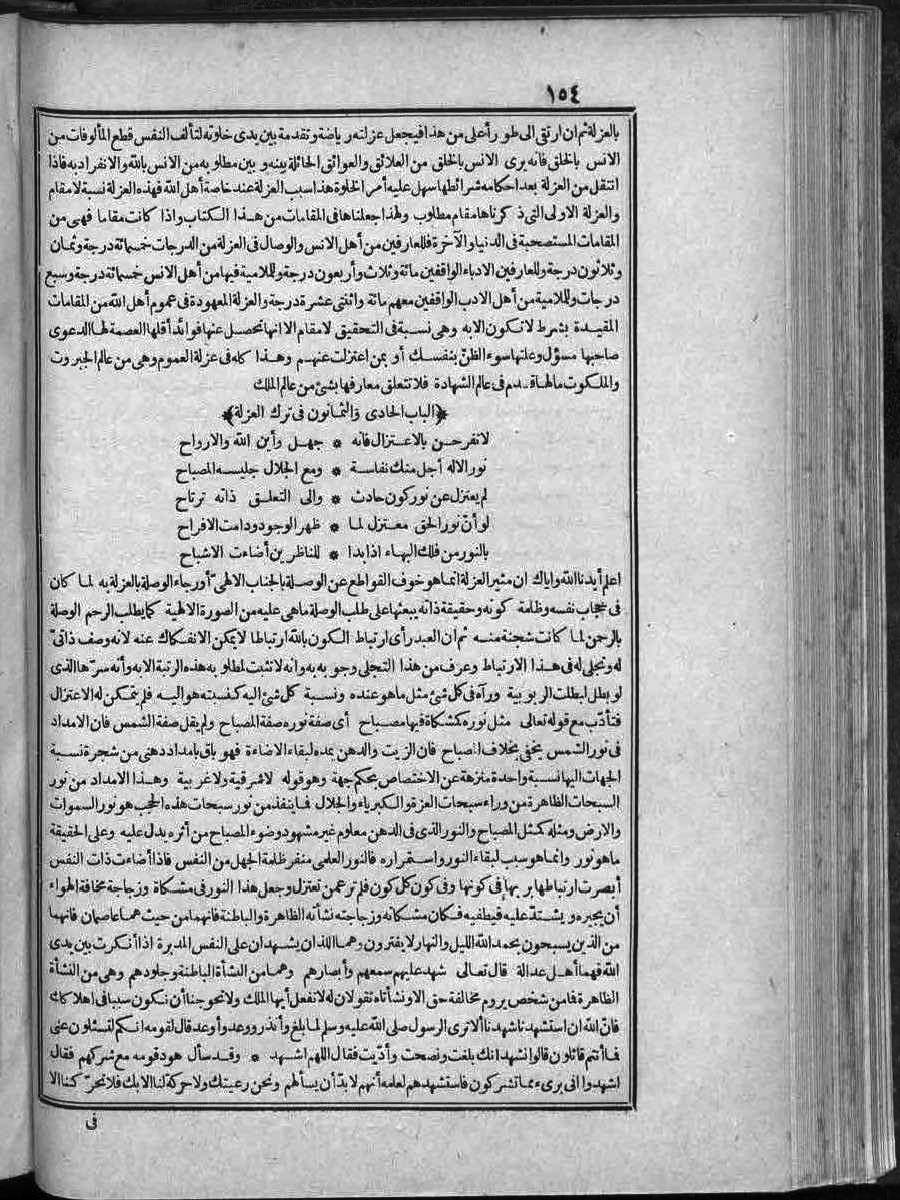 ١٥٤
بالعزلة ثم ان ارتقى الى طور أعلى من هذا فيجعل عزلته رياضة وتقدمة بين يدى خلوته لتألف النفس قطع المألوفات من
الانس بالخلق فانه يرى الانس بالخلق من العلائق والعوائق الحائلة بينه وبين مطلوبه من الانس بالله والانفراد به فاذا
انتقل من العزلة بعد احكامه شرائطها سهل عليه أمر الخلوة هذا سبب العزلة عند خاصة أهل الله فهذه العزلة نسبة لا مقام
والعزلة الاولى التى ذكرناها مقام مطلوب ولهذا جعلناها فى المقامات من هذا الكتاب واذا كانت مقاما فهى من
المقامات المستصحبة فى الدنيا والآخرة فللعارفين من أهل الانس والوصال فى العزلة من الدرجات خمسمائة درجة وثمان
وثلاثون درجة وللعارفين الادباء الواقفين مائة وثلاث وأربعون درجة وللملامية فيها من أهل الانس خمسمائة درجة وسبع
درجات وللملامية من أهل الادب الواقفين معهم مائة واثنتى عشرة درجة والعزلة المعهودة فى عموم أهل الله من المقامات
المقيدة بشرط لا تكون الا به وهى نسبة فى التحقيق لا مقام الا انها تحصل عنها فوائد أقلها العصمة لها الدعوى
صاحبها مسؤل وعلتها سوء الظن بنفسك أو بمن اعتزلت عنهم وهذا كله فى عزلة العموم وهى من عالم الجبروت
والملكوت مالها قدم فى عالم الشهادة فلا تتعلق معارفها بشئ من عالم الملك
﴿الباب الحادى والثمانون فى ترك العزلة﴾
لا تفرحن بالاعتزال فانه * جهل وأين الله والارواح
نور الاله أجل منك نفاسة * ومع الجلال جليسه المصباح
لم يعتزل عن نور كون حادث * والى التعلق ذاته ترتاح
لو أنّ نور الحق معتزل لما * ظهر الوجود ودامت الافراح
بالنور من فلك البهاء اذا بدا * للناظرين أضاءت الاشباح
اعلم أيدنا الله واياك ان مثير العزلة انما هو خوف القواطع عن الوصلة بالجناب الالهىّ أو رجاء الوصلة بالعزلة به لما كان
فى حجاب نفسه وظلمة كونه وحقيقة ذاته يبعثها على طلب الوصلة ما هى عليه من الصورة الالهية كما يطلب الرحم الوصلة
بالرحمن لما كانت شجنة منه ثم ان العبد رأى ارتباط الكون بالله ارتباطا لا يمكن الانفكاك عنه لانه وصف ذاتىّ
له وتجلى له فى هذا الارتباط وعرف من هذا التجلى وجوبه به وانه لا تثبت لمطلوبه هذه الرتبة الا به وأنه سرّها الذى
لو بطل لبطلت الربوبية ورآه فى كل شئ مثل ما هو عنده ونسبة كل شئ اليه كنسبته هو اليه فلم يتمكن له الاعتزال
فتأدّب مع قوله تعالى مثل نوره كمشكاة فيها مصباح أى صفة نوره صفة المصباح ولم يقل صفة الشمس فان الامداد
فى نور الشمس يخفى بخلاف المصباح فان الزيت والدهن يمده لبقاء الاضاءة فهو باق بامداد دهنى من شجرة نسبة
الجهات اليها نسبة واحدة منزهة عن الاختصاص بحكم جهة وهو قوله لا شرقية ولا غربية وهذا الامداد من نور
السبحات الظاهرة من وراء سبحات العزة والكبرياء والجلال فما ينفذ من نور سبحات هذه الحجب هو نور السموات
والارض ومثله كمثل المصباح والنور الذى فى الدهن معلوم غير مشهود وضوء المصباح من أثره يدل عليه وعلى الحقيقة
ما هو نور وانما هو سبب لبقاء النور واستمراره فالنور العلمى منفر ظلمة الجهل من النفس فاذا أضاءت ذات النفس
أبصرت ارتباطها بربها فى كونها وفى كون كل كون فلم تر عمن تعتزل وجعل هذا النور فى مشكاة وزجاجة مخافة الهواء
أن يحيره ويشتدّ عليه فيطفيه فكان مشكاته وزجاجته نشأته الظاهرة والباطنة فانهما من حيث هما عاصمان فانهما
من الذين يسبحون بحمد الله الليل والنهار لا يفترون وهما اللذان يشهدان على النفس المدبرة اذا أنكرت بين يدى
الله فهما أهل عدالة قال تعالى شهد عليهم سمعهم وأبصارهم وهما من النشأة الباطنة وجلودهم وهى من النشأة
الظاهرة فما من شخص يروم مخالفة حق الا ونشأتاه تقولان له لا تفعل أيها الملك ولا تحوجنا أن نكون سببا فى اهلاكك
فانّ الله ان استشهدنا شهدنا ألا ترى الرسول صلى الله عليه وسلم لما بلغ وأنذر ووعد وأوعد قال لقومه انكم لتسئلون عنى
فما أنتم قائلون قالوا نشهد انك بلغت ونصحت وأدّيت فقال اللهم اشهد * وقد سأل هود قومه مع شركهم فقال
اشهدوا انى برىء مما تشركون فاستشهدهم لعلمه أنهم لا بدّ أن يسألهم ونحن رعيتك ولا حركة لنا الا بك فلا تحرّكنا الا
فى